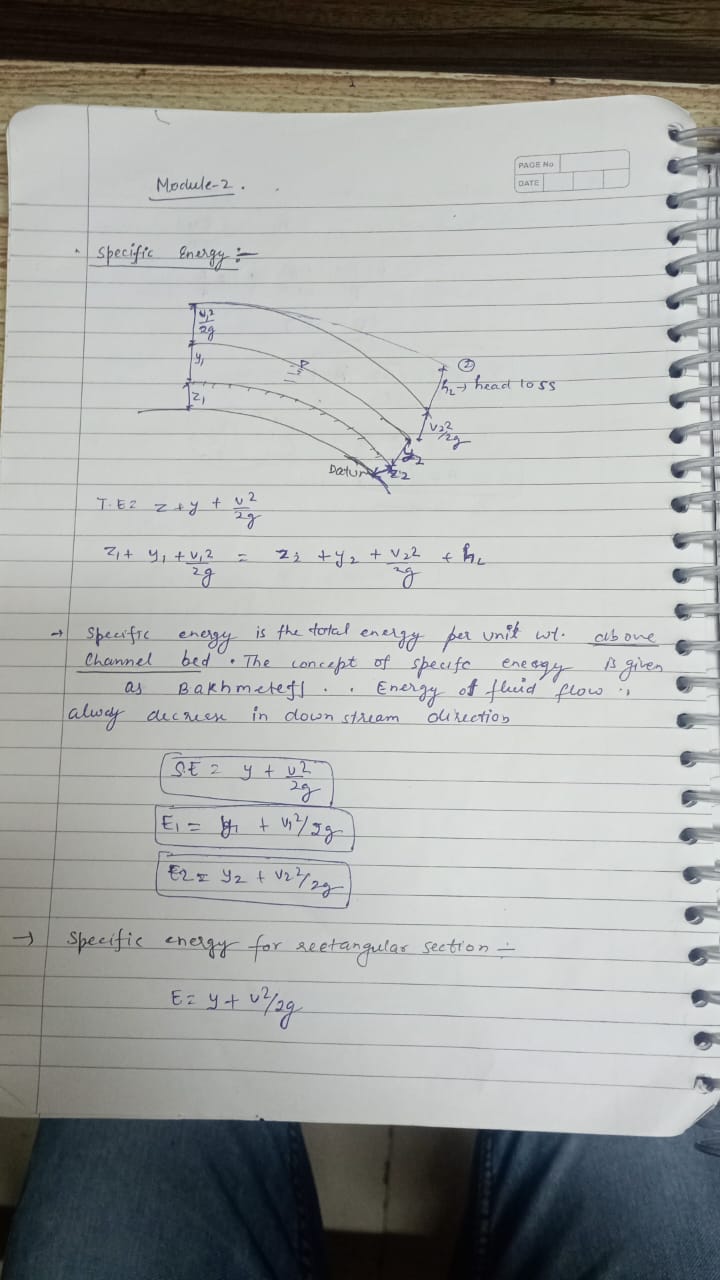 PAGE No
DATE
Module-2.
• Specific Energy :-
v₁²/2g
y₁
z₁
②
h₂ → head loss
v₂²/2g
y₂
z₂
Datum
T.E = z + y + v²/2g
z₁ + y₁ + v₁²/2g = z₂ + y₂ + v₂²/2g + h₂
→ Specific energy is the total energy per unit wt. above
Channel bed. The concept of specifc eneogy is given
as Bakhmeteff.. Energy of fluid flow is
alwdy decrese in down stream direction
S.E = y + v²/2g
E₁ = y₁ + v₁²/2g
E2 = y2 + v2²/2g
→ Specific energy for rectangular section ÷
E = y + v²/2g